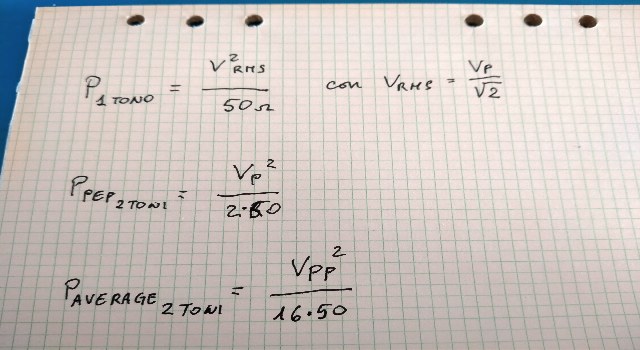 P₁ TONO = V²RMS / 50Ω con VRMS = VP / √2
P PEP 2 TONI = VP² / 2·50
P AVERAGE 2 TONI = VPP² / 16·50